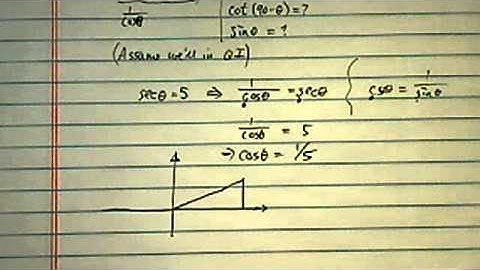 1/cosθ
cot(90-θ)=?
sinθ = ?
(Assume we'll in QI)
secθ = 5 ⇒ 1/cosθ = secθ { cscθ = 1/sinθ
1/cosθ = 5
→ cosθ = 1/5